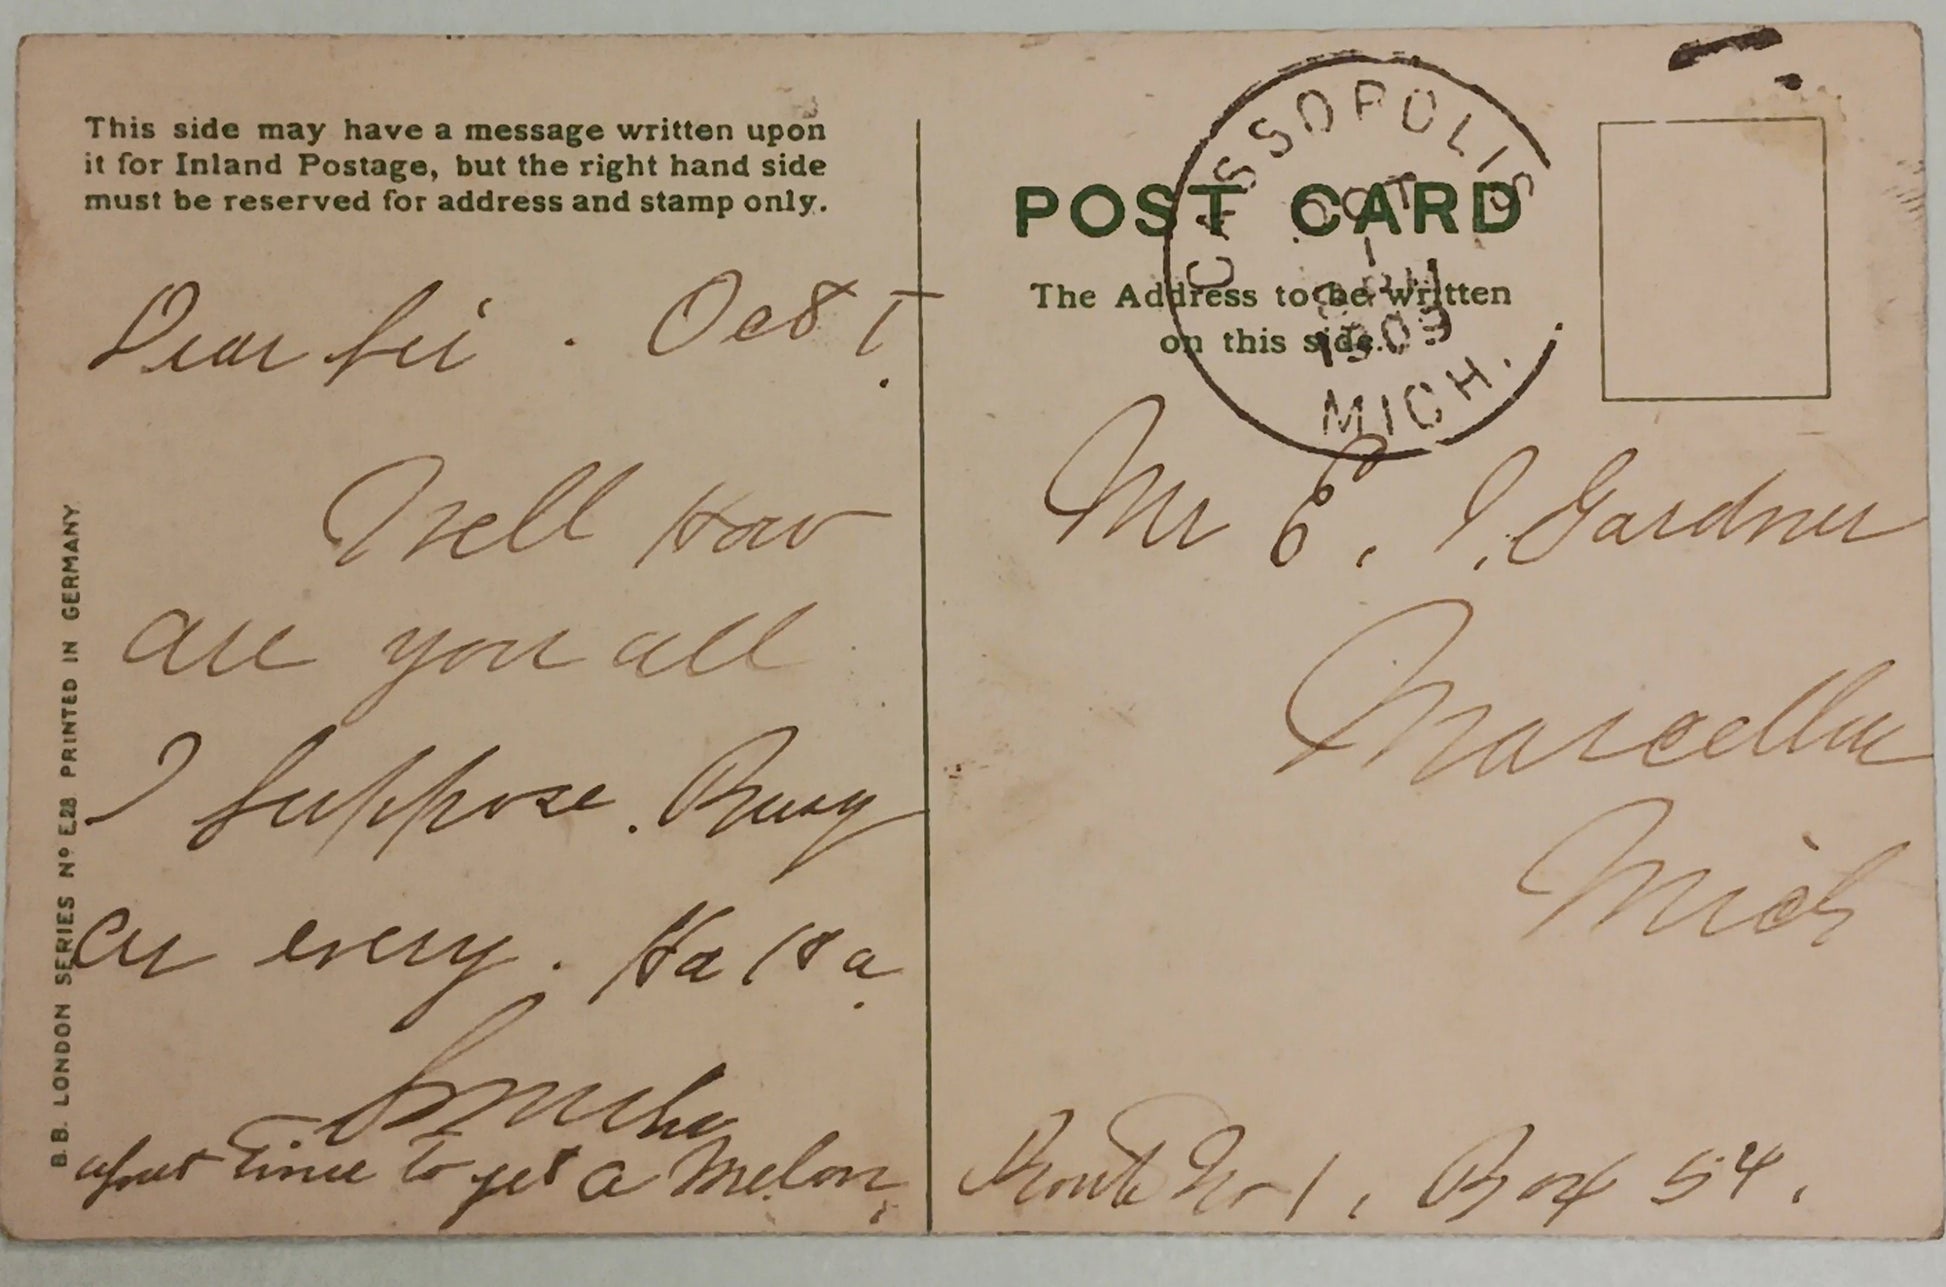 This side may have a message written upon
it for Inland Postage, but the right hand side
must be reserved for address and stamp only.
Dear Sir. Oct 1.
Well How
are you all
I suppose. Busy
as every. Ha Ha.
about Time to get a Melon.
B.B. LONDON SERIES Nº E28 PRINTED IN GERMANY.
POST CARD
The Address to be written
on this side.
CASSOPOLIS
OCT
1
1909
MICH.
Mr E. I. Gardner
Marcellus
Mich
Route No-1, Box 54.